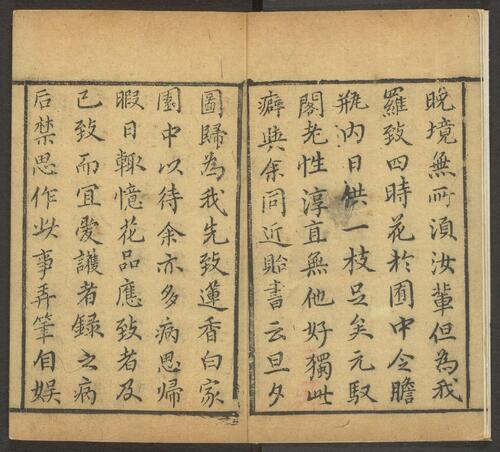 晚境無所須汝輩但為我
羅致四時花於圃中令膽
瓶內日供一枝足矣元馭
閣老性淳直無他好獨此
癖與余同近貽書云旦夕
圖歸為我先致蓮香白家
園中以待余亦多病思歸
暇日輒憶花品應致者及
已致而宜愛護者錄之病
后禁思作此事弄筆自娛